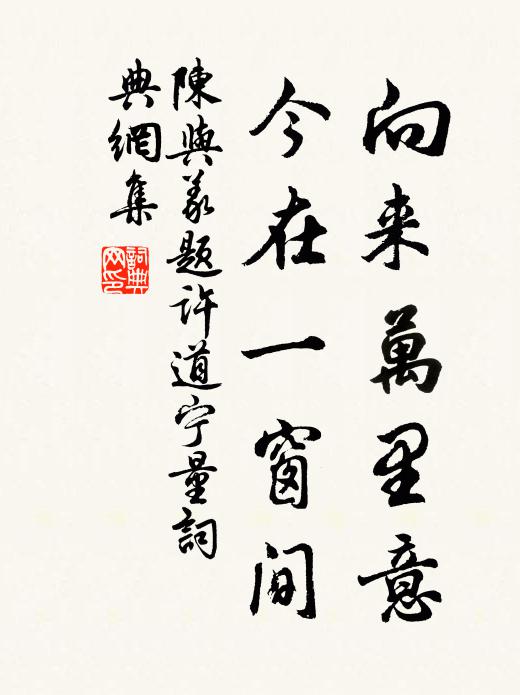 向来萬里意
今在一窗間
陳與義題許道宁量詞
典網集
詞典
网印